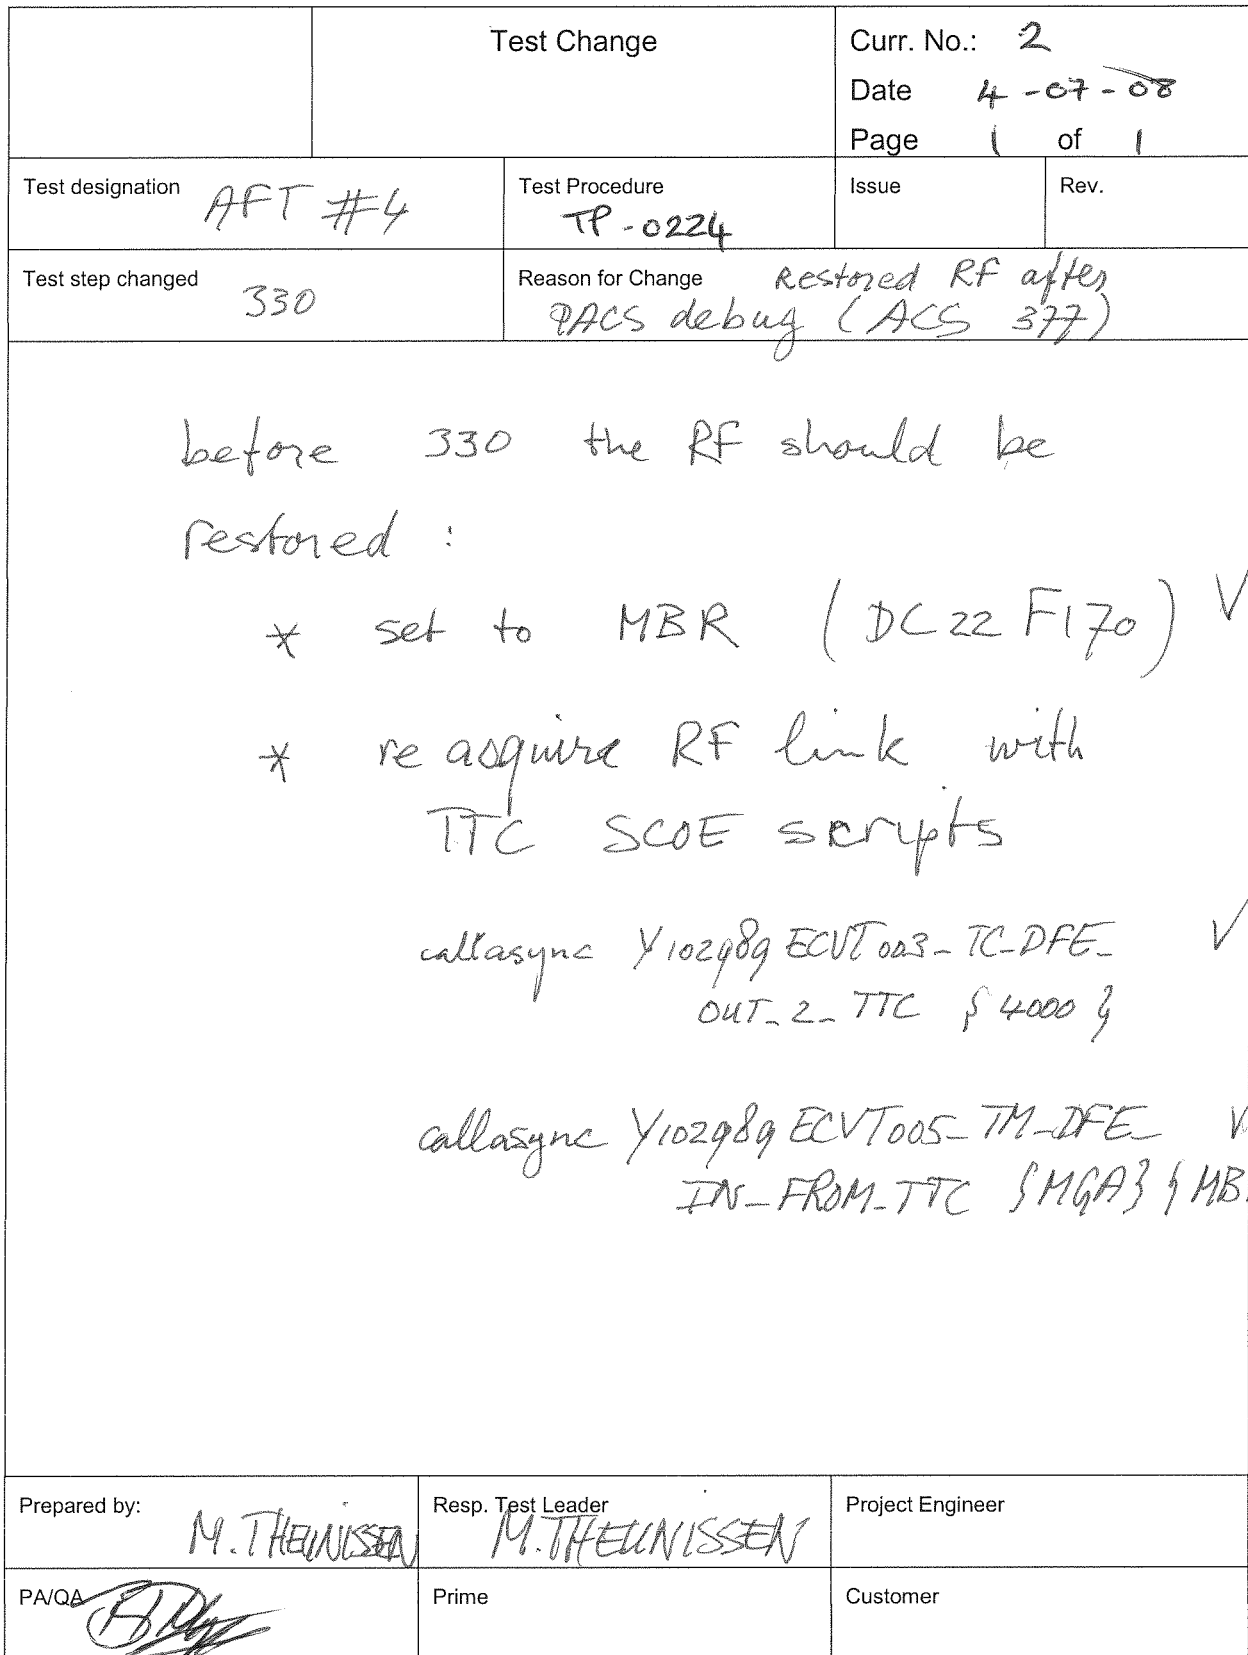 Test Change
Curr. No.: 2
Date 4-07-08
Page 1 of 1
Test designation AFT #4
Test Procedure TP-0224
Issue
Rev.
Test step changed 330
Reason for Change Restored RF after
PACS debug (ACS 377)
before 330 the RF should be
restored :
* set to MBR (DC22F170) √
* re acquire RF link with
TTC SCOE scripts
callasync Y102989ECVT003_TC_DFE_ √
OUT_2_TTC {4000}
callasync Y102989ECVT005_TM_DFE_
IN_FROM_TTC {MGA} {MB
Prepared by: M. THEUNISSEN
Resp. Test Leader M. THEUNISSEN
Project Engineer
PA/QA
Prime
Customer